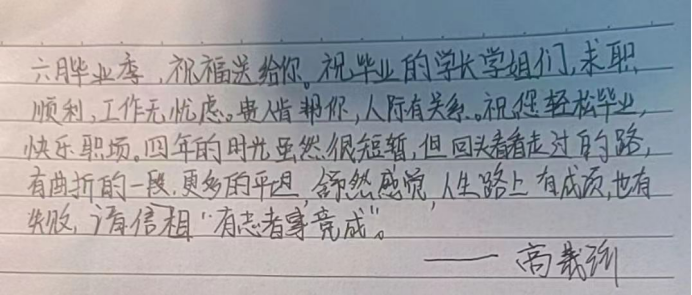 六月毕业季,祝福送给你。祝毕业的学长学姐们,求职
顺利,工作无忧虑。贵人皆帮你,人际有关系。祝您轻松毕业,
快乐职场。四年的时光虽然很短暂,但回头看看走过的路,
有曲折的一段,更多的平坦,舒然感觉,人生路上有成顶,也有
失败,请信相“有志者事竟成”。
——高